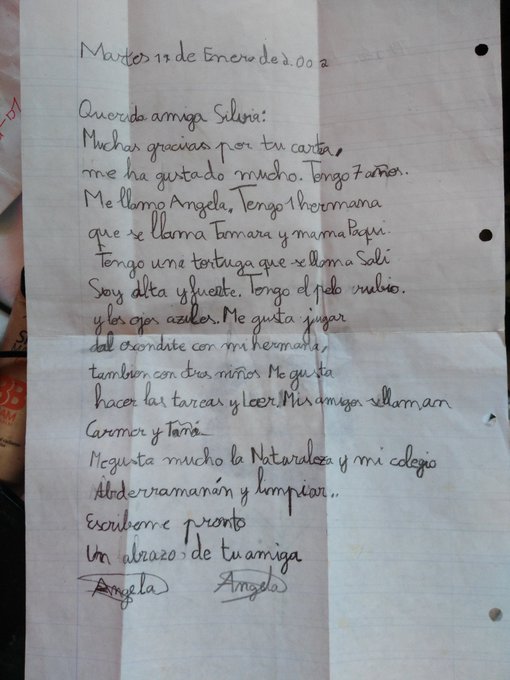 Martes 17 de Enero de 2.002
Querida amiga Silvia:
Muchas gracias por tu carta,
me ha gustado mucho. Tengo 7 años.
Me llamo Angela. Tengo 1 hermana
que se llama Tamara y mama Paqui.
Tengo una tortuga que se llama Sali
Soy alta y fuerte. Tengo el pelo rubio.
y los ojos azules. Me gusta jugar
al escondite con mi hermana,
tambien con otros niños Me gusta
hacer las tareas y Leer. Mis amigos se llaman
Carmer y Tañá
Me gusta mucho la Naturaleza y mi colegio
Abderramanán y limpiar..
Escribeme pronto
Un abrazo, de tu amiga
Angela Angela